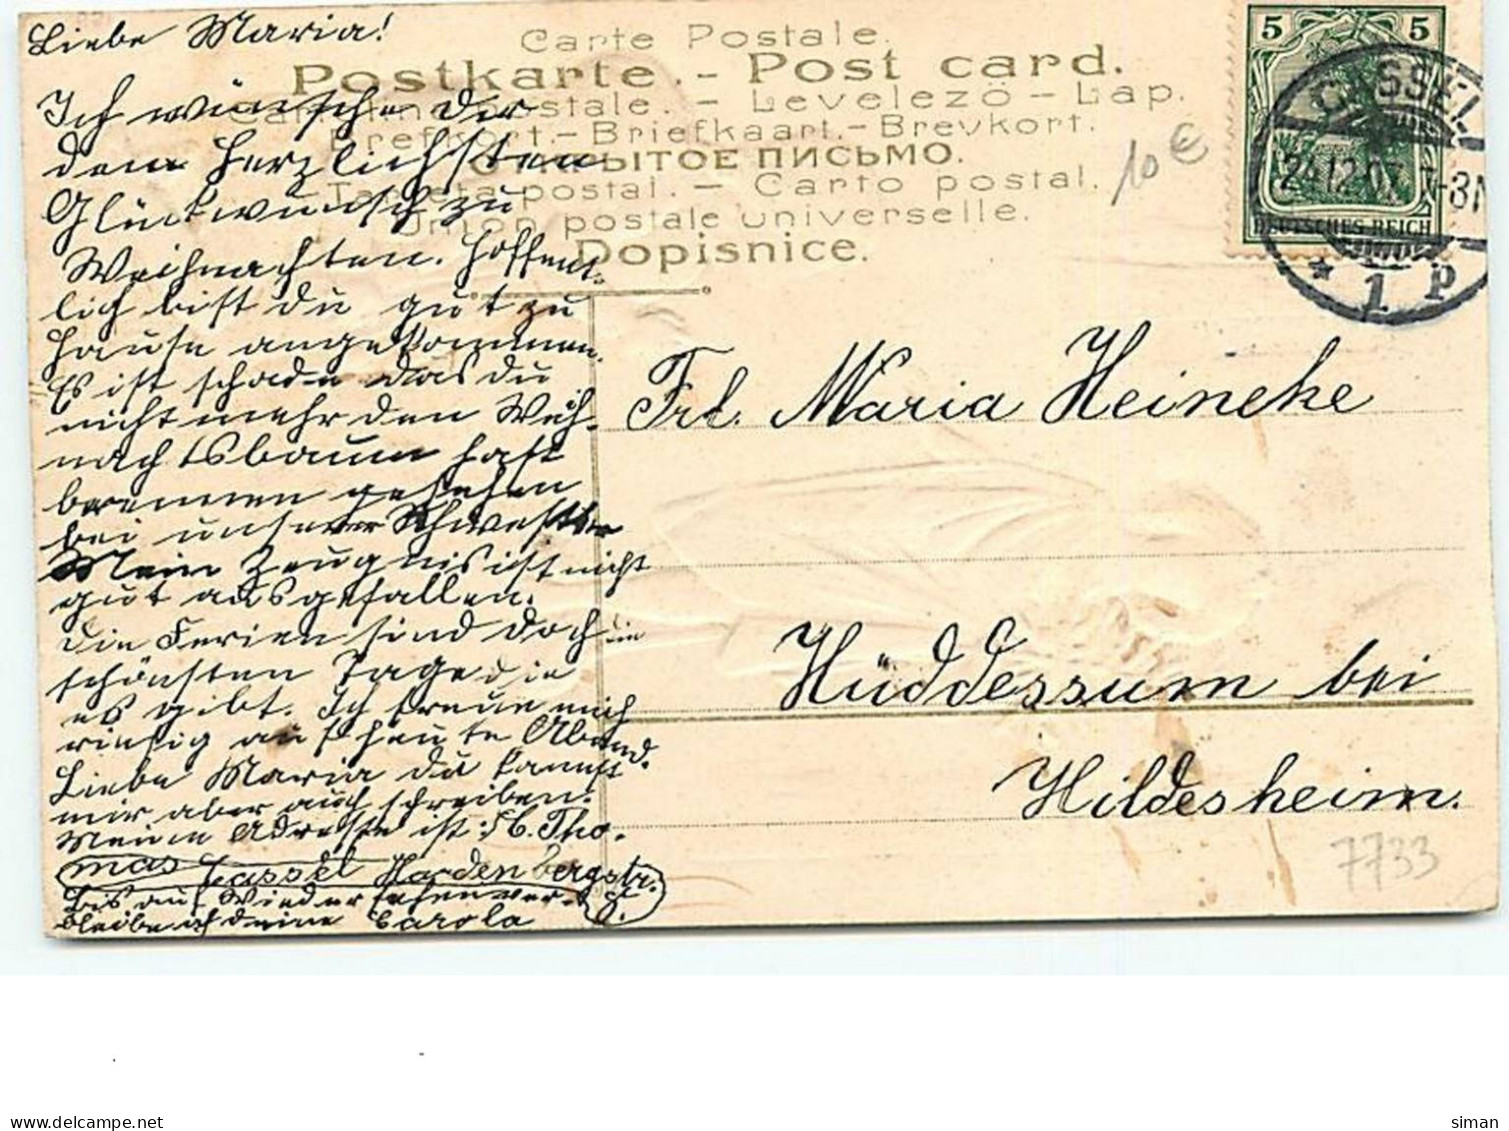 Liebe Maria!
Ich wünsche dir
den herzlichsten
Glückwunsch zu
Weihnachten. Hoffent-
lich bist du gut zu
Hause angekommen.
Es ist schade das du
nicht mehr den Weih-
nachtsbaum hast
brennen gesehen
bei unserer Schwester
Mein Zeugnis ist nicht
gut ausgefallen.
Die Ferien sind doch die
schönsten Tage die
es gibt. Ich freue mich
riesig auf heute Abend.
Liebe Maria du kannst
mir aber auch schreiben.
Meine Adresse ist: Tho-
mas Cassel Hardenbergstr.
8.
Bis auf Wiedersehen ver-
bleibe ich deine Carola
Carte Postale.
Postkarte. - Post card.
postale. - Levelezö - Lap.
Brefkort. - Briefkaart. - Brevkort.
ОТКРЫТОЕ ПИСЬМО.
Tarjeta postal. - Carto postal.
Union postale universelle.
Dopisnice.
10 €
5 5
DEUTSCHES REICH
CASSEL
24.12.07. 7-8N
* 1 P
Frl. Maria Heineke
Hüddessum bei
Hildesheim.
7733
www.delcampe.net
siman